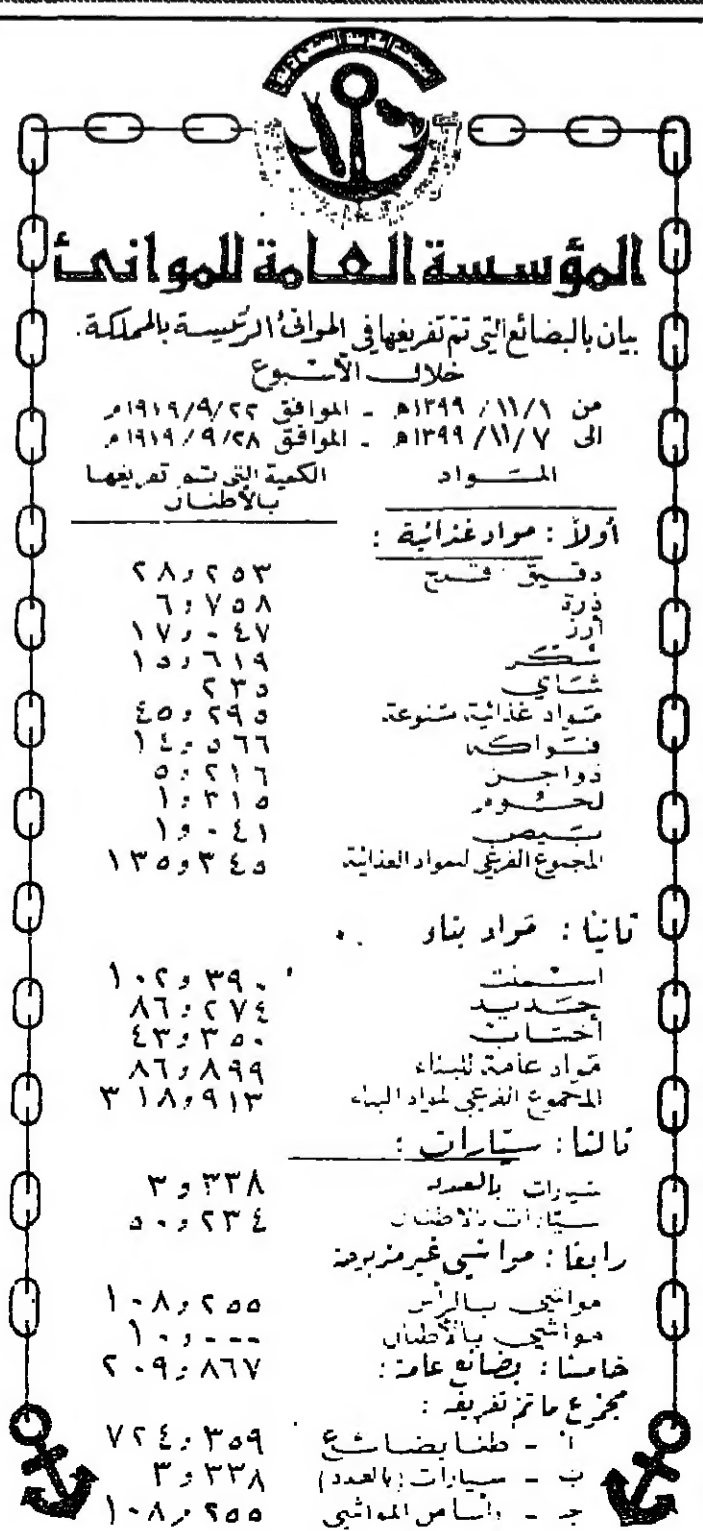 المؤسسة العامة للموانئ
بيان بالبضائع التي تم تفريغها في الموانئ الرئيسة بالمملكة.
خلال الأسبوع
من ١٣٩٩/١١/١هـ - الموافق ١٩١٩/٩/٢٢م
الى ١٣٩٩/١١/٧هـ - الموافق ١٩١٩/٩/٢٨م
المــواد الكمية التي تم تفريغها بالأطنان
أولاً : مواد غذائية :
دقيق قمح ٢٥٣و٢٨
ذرة ٧٥٨و٦
أرز ٠٤٧و١٧
سكر ٦١٩و١٥
شاي ٢٣٥
مواد غذائية متنوعة ٢٩٥و٤٥
فواكه ٥٦٦و١٤
دواجن ٢١٦و٥
لحوم ٣١٥و١
بيض ٠٤١و١
المجموع الفرعي لمواد الغذائية ٣٤٥و١٣٥
ثانيا : مواد بناء
اسمنت ٣٩٠و١٠٢
حديد ٢٧٤و٨٦
أخشاب ٣٥٠و٤٣
مواد عامة للبناء ٨٩٩و٨٦
المجموع الفرعي لمواد البناء ٩١٣و٣١٨
ثالثا : سيارات :
سيارات بالعدد ٣٣٨و٣
سيارات بالاطنان ٢٣٤و٥٠
رابعا : مواشي غير مذبوحة
مواشي بالرأس ٢٥٥و١٠٨
مواشي بالأطنان ٠٠٠و١٠
خامسا : بضائع عامة : ٨٦٧و٢٠٩
مجموع ما تم تفريغه :
أ - طنا بضائع ٣٥٩و٧٢٤
ب - سيارات (بالعدد) ٣٣٨و٣
جـ - رأسا من المواشي ٢٥٥و١٠٨